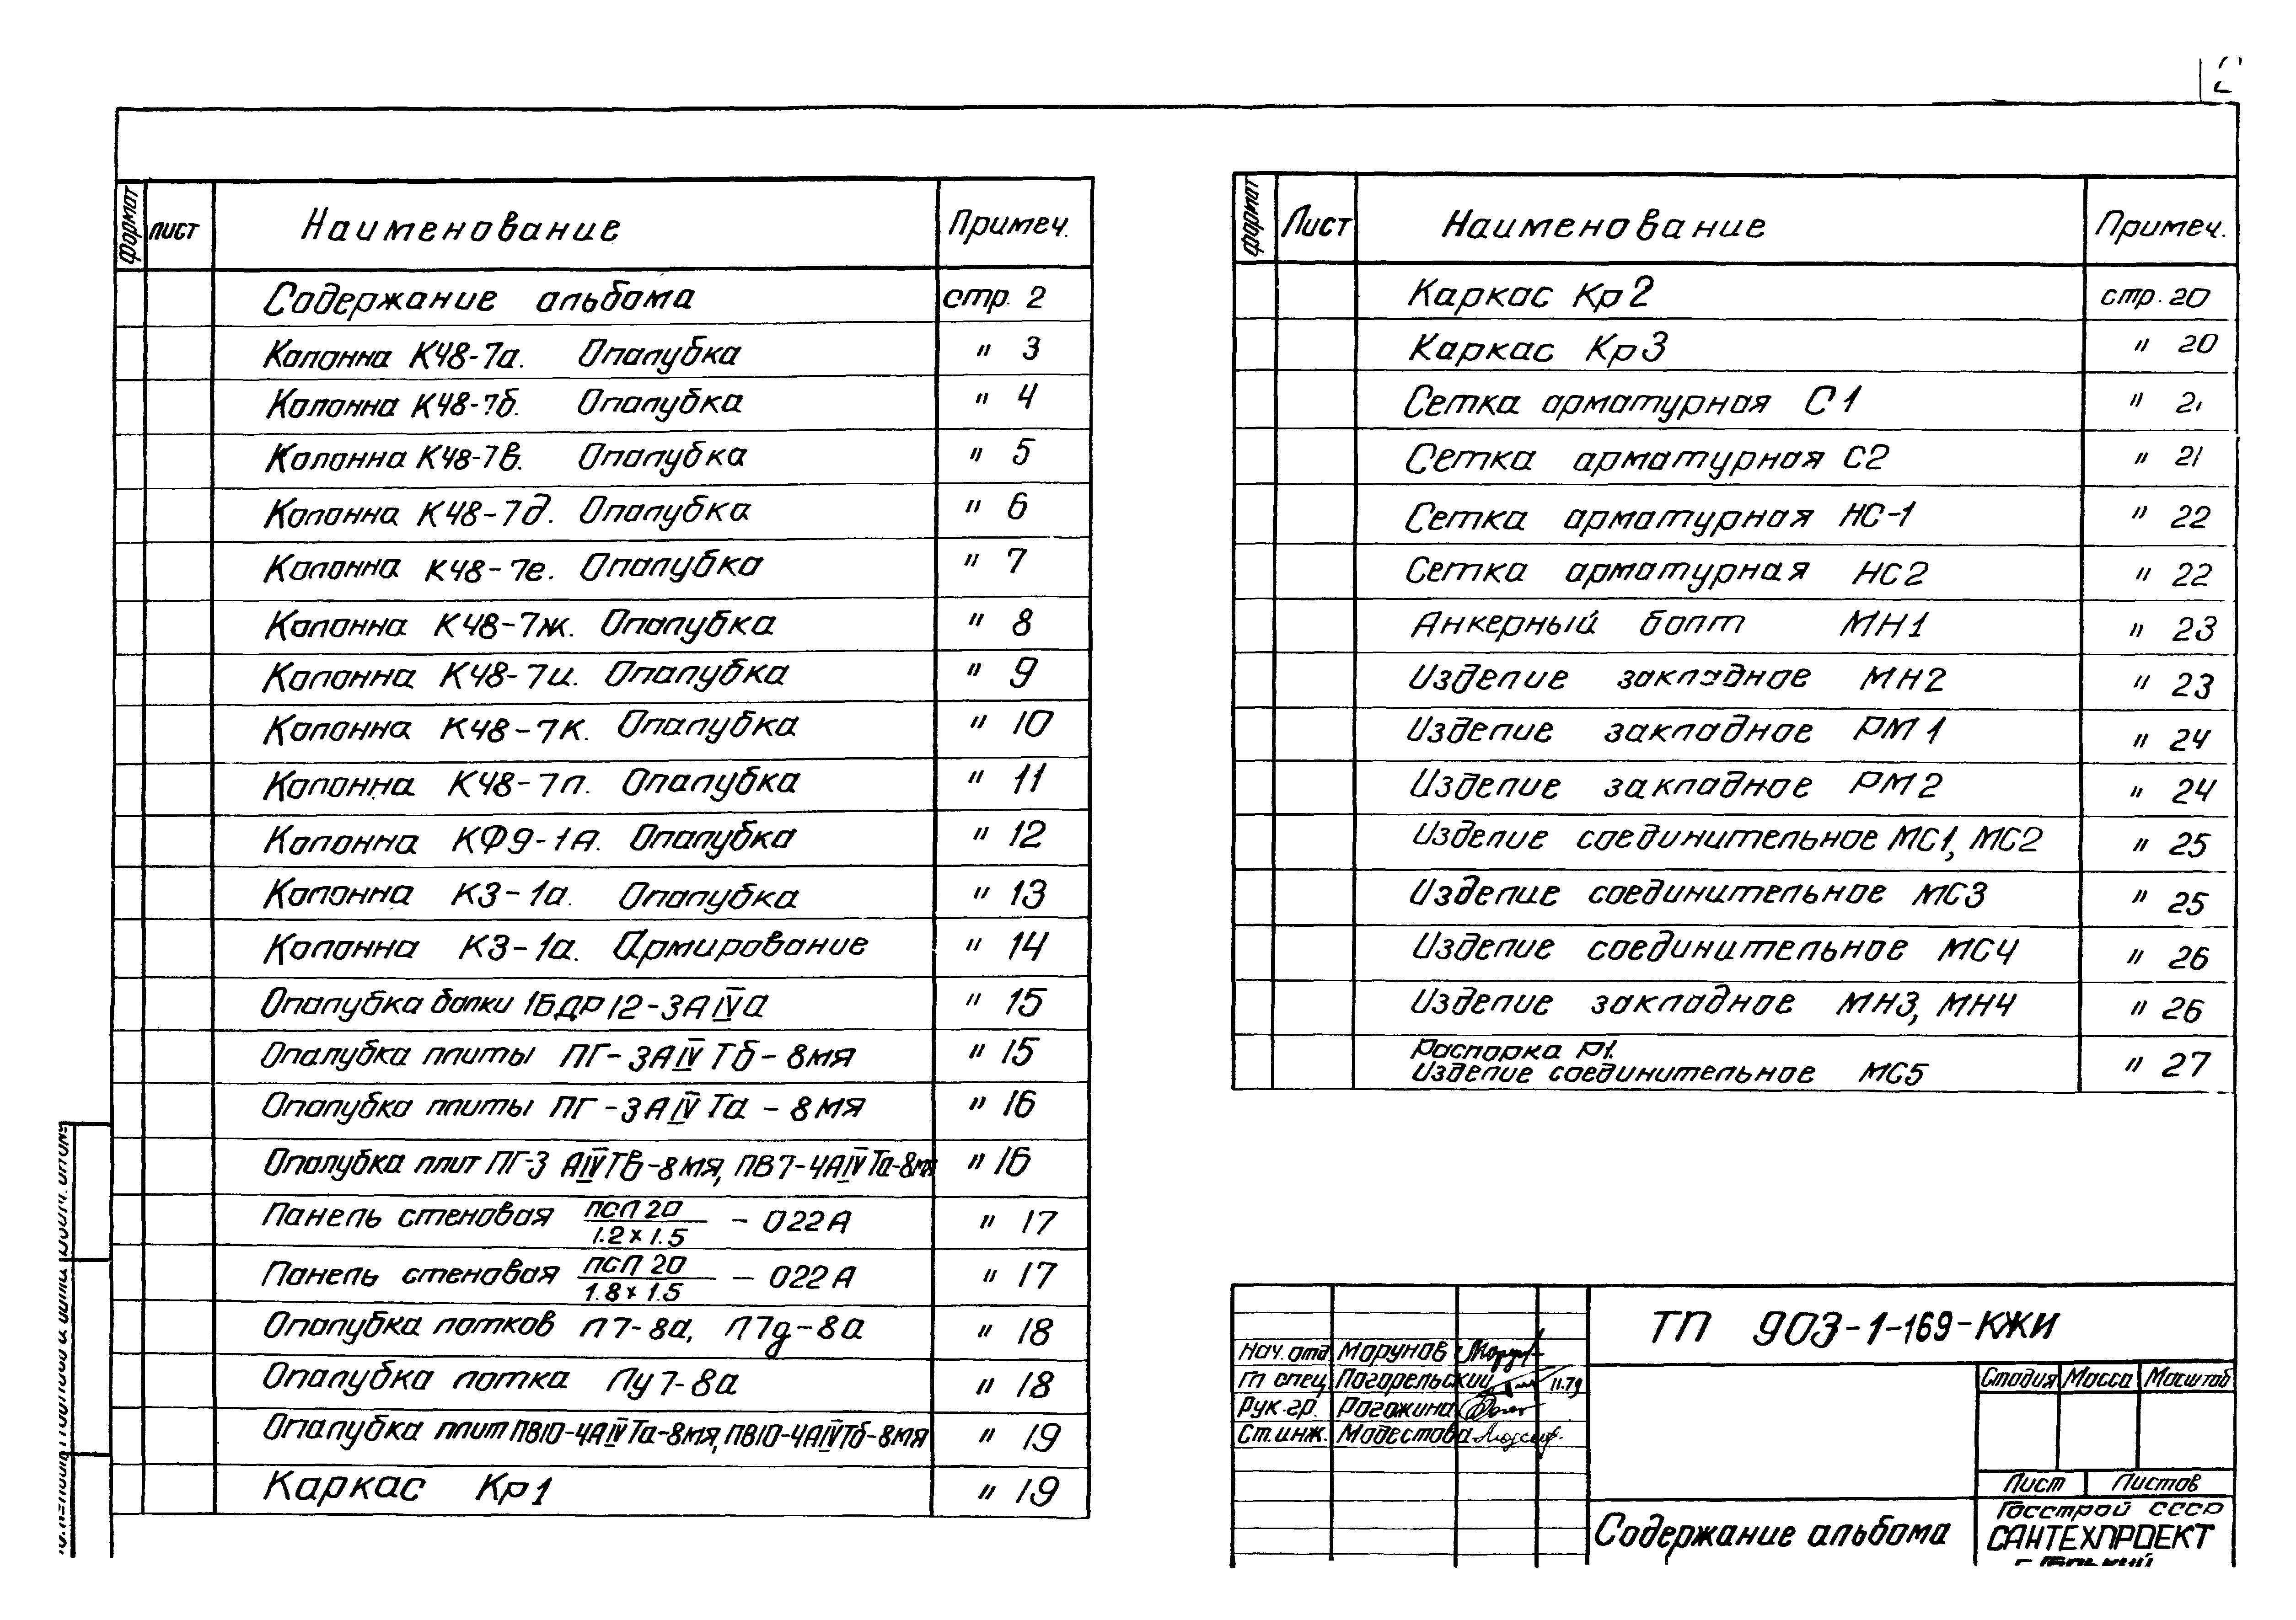 2
Формат лист Наименование Примеч.
Содержание альбома стр. 2
Колонна К48-7а. Опалубка " 3
Колонна К48-7б. Опалубка " 4
Колонна К48-7в. Опалубка " 5
Колонна К48-7д. Опалубка " 6
Колонна К48-7е. Опалубка " 7
Колонна К48-7ж. Опалубка " 8
Колонна К48-7и. Опалубка " 9
Колонна К48-7к. Опалубка " 10
Колонна К48-7л. Опалубка " 11
Колонна КФ9-1А. Опалубка " 12
Колонна К3-1а. Опалубка " 13
Колонна К3-1а. Армирование " 14
Опалубка балки 1БДР12-3АIVа " 15
Опалубка плиты ПГ-3АIVТб-8мя " 15
Опалубка плиты ПГ-3АIVТа-8мя " 16
Опалубка плит ПГ-3 АIVТв-8мя, ПВ7-4АIVТа-8мя " 16
Панель стеновая ПСЛ 20 / 1.2×1.5 - 022А " 17
Панель стеновая ПСЛ 20 / 1.8×1.5 - 022А " 17
Опалубка лотков Л7-8а, Л7д-8а " 18
Опалубка лотка Лу7-8а " 18
Опалубка плит ПВ10-4АIVТа-8мя, ПВ10-4АIVТб-8мя " 19
Каркас Кр1 " 19
формат Лист Наименование Примеч.
Каркас Кр2 стр. 20
Каркас Кр3 " 20
Сетка арматурная С1 " 21
Сетка арматурная С2 " 21
Сетка арматурная НС-1 " 22
Сетка арматурная НС2 " 22
Анкерный болт МН1 " 23
Изделие закладное МН2 " 23
Изделие закладное РМ1 " 24
Изделие закладное РМ2 " 24
Изделие соединительное МС1, МС2 " 25
Изделие соединительное МС3 " 25
Изделие соединительное МС4 " 26
Изделие закладное МН3, МН4 " 26
Распорка Р1.
Изделие соединительное МС5 " 27
ТП 903-1-169-КЖИ
Нач. отд. Морунов
Гл спец. Погорельский 11.79
Рук. гр. Рогожина
Ст. инж. Модестова
Стадия Масса Масштаб
Лист Листов
Содержание альбома
Госстрой СССР
САНТЕХПРОЕКТ